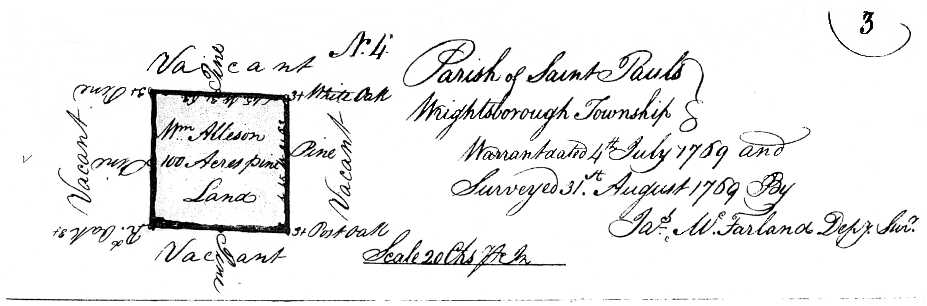 3
N.º 4
Vacant
Pine
3+ Pine
3+ White Oak
Vacant
Pine
Wm Alleson
100 Acres pine
Land
Pine
Vacant
Rd. Oak 3+
3+ Post Oak
Vacant
Pine
Parish of Saint Pauls
Wrightsborough Township
Warrant dated 4th July 1769 and
Surveyed 31st August 1769 By
Jas. McFarland Depy. Survr.
Scale 20 Chs Pr In